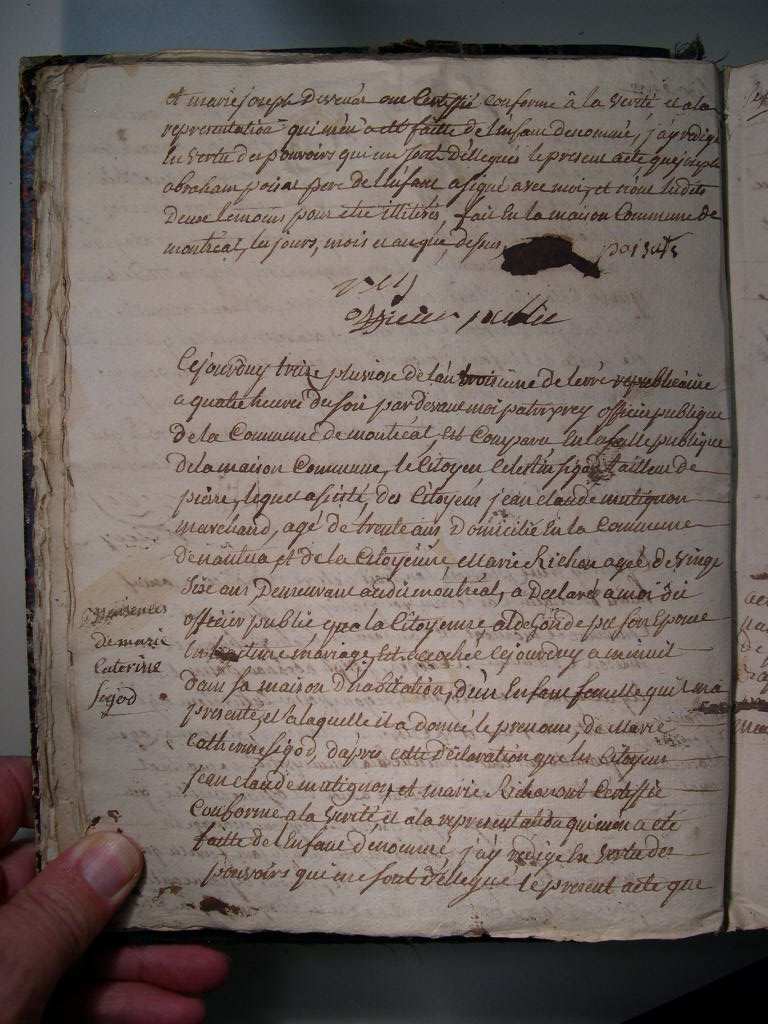 et marie joseph Devenás ont Certiffié Conforme â la Verité et ala
representation qui men a eté faitte de l'enfant denommé, j'ay redigé
En Vertu des pouvoirs qui me sont Délégués le present acte que
abraham poisat pere de l'Enfant a signé avec moi, et non ludits
Deux temoins pour etre illitérés, fait En la maison Commune de
montréal, les jours, mois et an que dessus
poisats
officier public
Cejourduy treize pluviose de l'an troisieme de lerre republicaine
a quatre heures du soir pardevant moi prey officier publique
de la Commune de montréal Est Comparu En la salle publique
de la maison Commune, le Citoyen Celestin sigod tailleur de
pierre, lequel assisté, des Citoyens jean claude mutignon
marchand, agé de trente ans Domicilié En la Commune
de nantua et de la Citoyenne Marie Richon agée de Vingt
Six ans, Demeurant audit montréal, a Declaré a moi dit
officier public que la Citoyenne son Epouse
En mariage Est accouchée Cejourduy a minuit
dans sa maison d'habitation, d'un Enfant femelle qu'il ma
presenté, et a laquelle il a donné le prenom, de Marie
Catherine sigod, daprés cette déclaration que les Citoyens
jean claude mutignon, et marie Richonont Certiffié
Conforme a la Verité et a la representation qui men a eté
faitte de l'Enfant dénommé j'ay redigé En Vertu des
pouvoirs qui me sont Délégué le present acte que
Naisences
de marie
Caterine
sigod